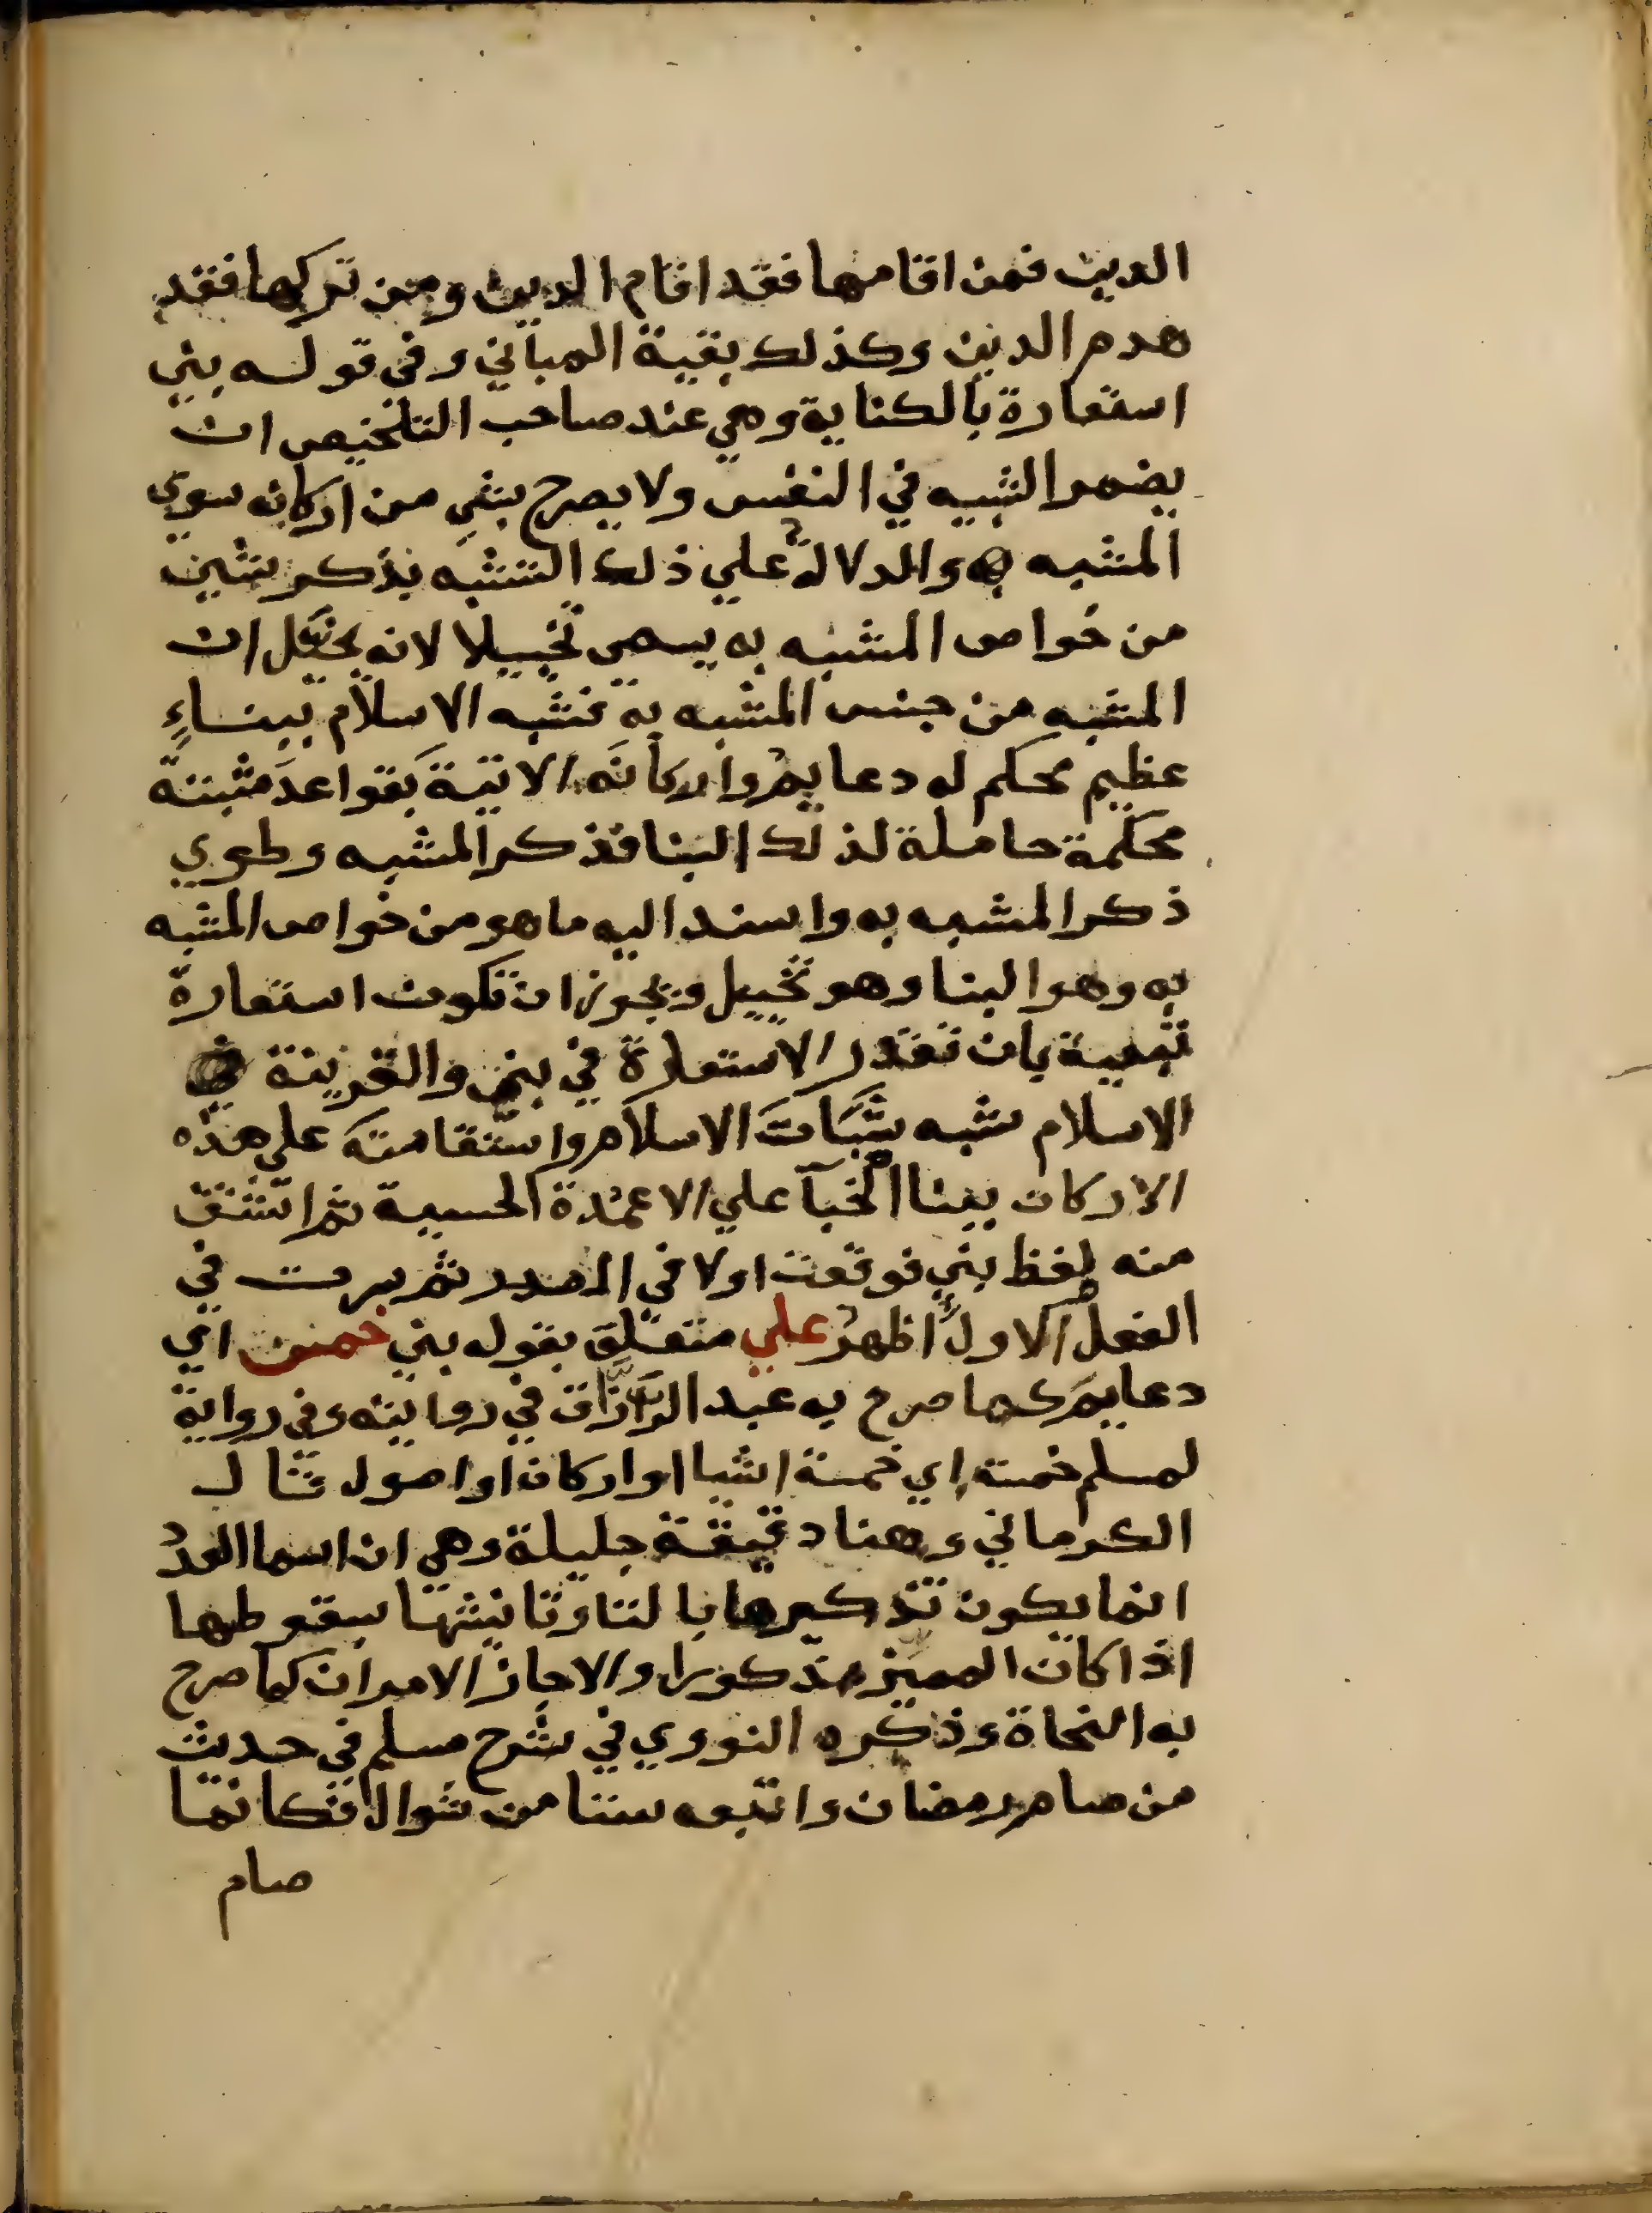 الدين فمن اقامها فقد اقام الدين ومن تركها فقد
هدم الدين وكذلك بقية المباني وفي قوله بني
استعارة بالكناية وهي عند صاحب التلخيص ان
يضمر الشبيه في النفس ولا يصرح بشي من اركانه سوي
المشبه والدلالة علي ذلك التشبه بذكر شين
من خواص المشبه به يسمي تخييلا لانه يخيل ان
المشبه من جنس المشبه به فشبه الاسلام ببناءٍ
عظيم محكم له دعايم واركانه الاتية بقواعد مثبتة
محكمة حاملة لذلك البنا فذكر المشبه وطوي
ذكر المشبه به واسند اليه ما هو من خواص المشبه
به وهو البنا وهو تخييل ويجوز ان تكون استعارة
تبعية بان تقدر الاستعارة في بني والقرينة في
الاسلام شبه ثبات الاسلام واستقامته علي هذه
الاركان ببنا الخبآ علي الاعمدة الحسية ثم اشتق
منه لفظ بني فوقعت اولا في المصدر ثم سرت في
الفعل والاول اظهر علي متعلق بقوله بني خمس اي
دعايم كما صرح به عبد الرزاق في روايته وفي رواية
لمسلم خمسة اي خمسة اشيا او اركان او اصول قال
الكرماني وهنا دقيقة جليلة وهي ان اسما العدد
انما يكون تذكيرها بالتا وتانيثها بسقوطها
اذا كان المميز مذكورا والا جاز الامران كما صرح
به النحاة وذكره النووي في شرح مسلم في حديث
من صام رمضان واتبعه ستا من شوال فكانما
صام